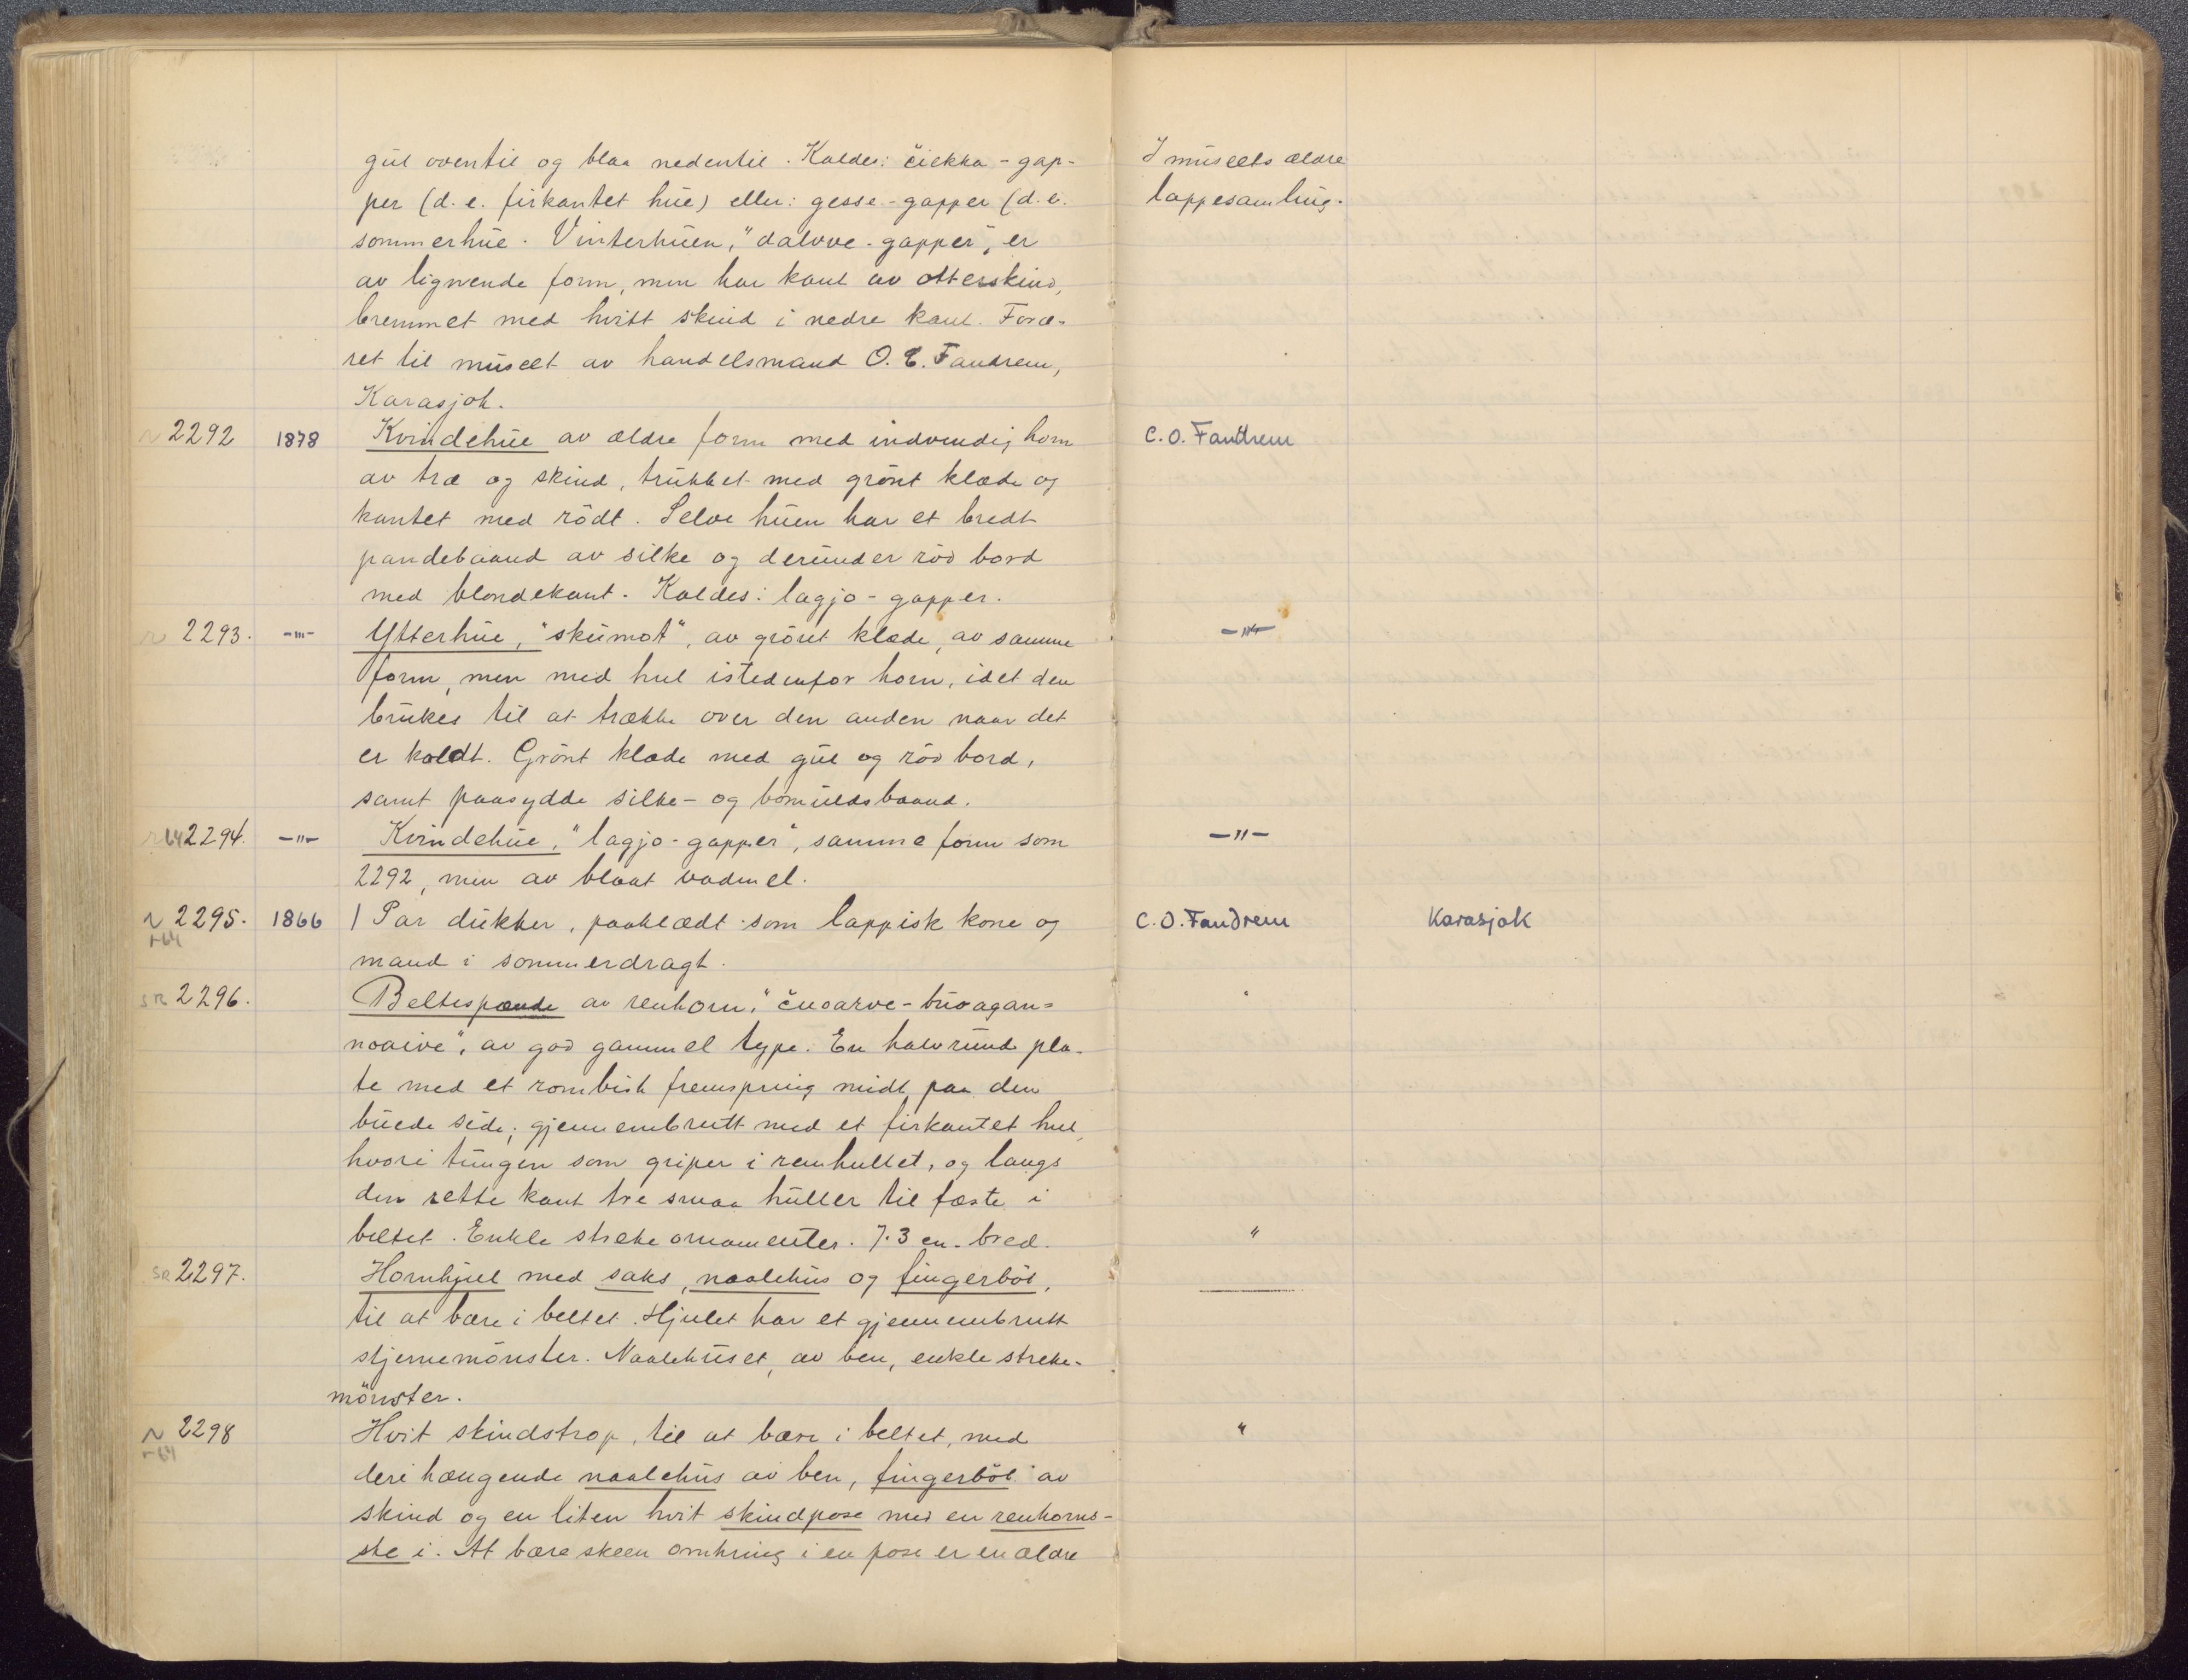 gul oventil og blaa nedentil. Kaldes: čiekka-gap-
per (d.e. firkantet hue) eller: gesse-gapper (d.e.
sommerhue. Vinterhuen, "dalvve-gapper", er
av lignende form, men har kant av otterskind,
bremmet med hvitt skind i nedre kant. Foræ-
ret til museet av handelsmand O. C. Fandrem,
Karasjok.
I museets ældre
lappesamling.
2292 1878 Kvindehue av ældre form med indvendig horn C. O. Fandrem
av træ og skind, trukket med grönt klæde og
kantet med rödt. Selve huen har et bredt
pandebaand av silke og derunder röd bord
med blondekant. Kaldes: lagjo-gapper.
2293. -"- Ytterhue, "skumot", av grönt klæde, av samme -"-
form, men med hul istedenfor horn, idet den
brukes til at trække over den anden naar det
er koldt. Grönt klæde med gul og röd bord,
samt paasydde silke- og bomuldsbaand.
2294. -"- Kvindehue, "lagjo-gapper", samme form som -"-
2292, men av blaat vadmel.
N 2295. 1866 1 Par dukker, paaklædt som lappisk kone og C. O. Fandrem Karasjok
mand i sommerdragt.
SR 2296. Beltespænde av renhorn, "čuoarve-buoagan-
noaive", av god gammel type. En halvrund pla-
te med et rombisk fremspring midt paa den
buede side; gjennembrutt med et firkantet hul,
hvori tungen som griper i remhullet, og langs
den rette kant tre smaa huller til fæste i
beltet. Enkle strekeornamenter. 7.3 cm. bred. "
SR 2297. Hornhjul med saks, naalehus og fingerböl,
til at bære i beltet. Hjulet har et gjennembrutt
stjernemönster. Naalehuset, av ben, enkle streke-
mönster.
N 2298 Hvit skindstrop, til at bære i beltet, med "
deri hængende naalehus av ben, fingerböl av
skind og en liten hvit skindpose med en renhorns-
ske i. At bære skeen omkring i en pose er en ældre